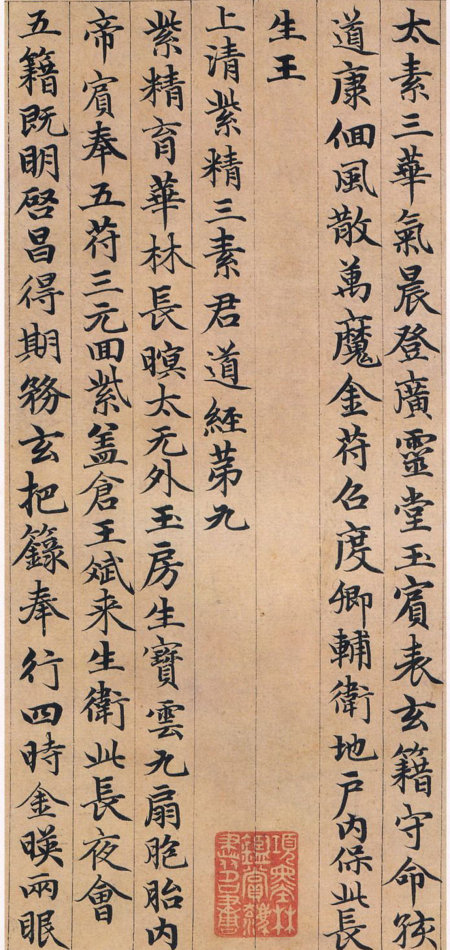 太素三華氣晨登廣靈堂玉賓表玄籍守命
道康佪風散萬魔金苻召度卿輔衛地戶內保此長
生王
上清紫精三素君道經苐九
紫精育華林長暝太无外玉房生寶雲九扇胞胎內
帝賓奉五苻三元回紫盖倉王斌来生衛此長夜會
五籍既明啓昌得期務玄把籙奉行四時金暎兩眠
項墨林鑑賞